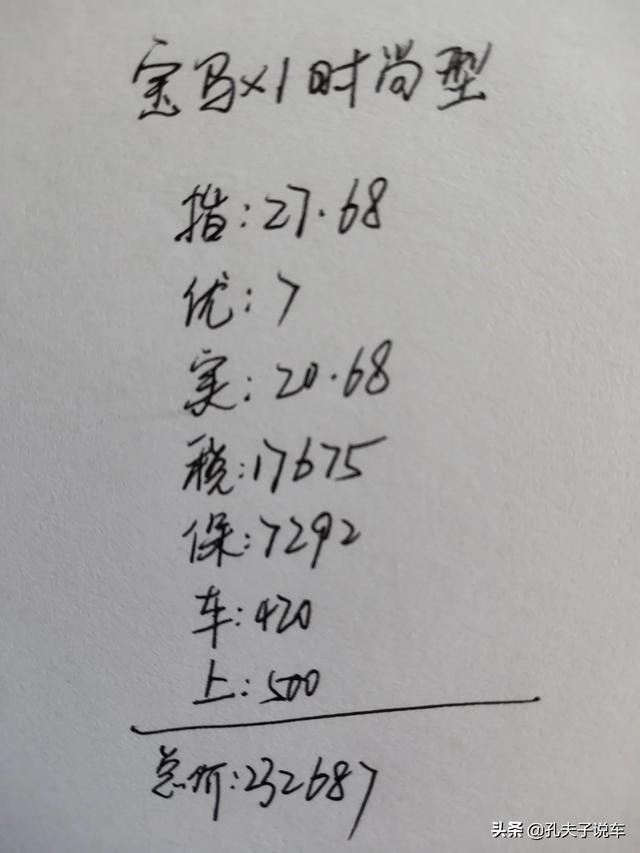 宝马x1时尚型
指:27.68
优:7
实:20.68
税:17675
保:7292
车:420
上:500
总价:232687
头条 @孔夫子说车